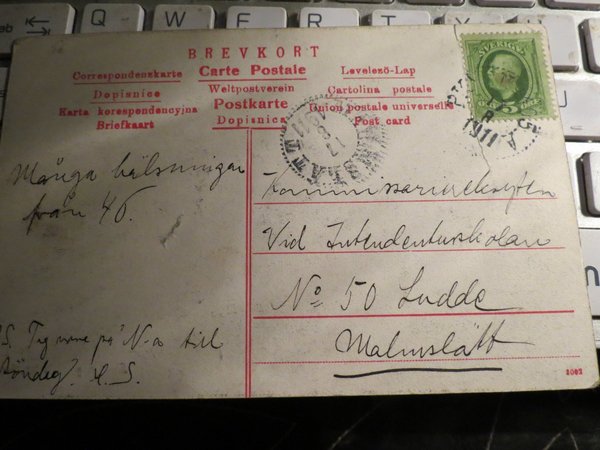 BREVKORT
Correspondenzkarte Carte Postale Levelező-Lap
Dopisnice Weltpostverein Cartolina postale
Karta korespondencyjna Postkarte Union postale universelle
Briefkaart Dopisnica Post card
SVERIGE
5 ÖRE
1911
MALMSLÄTT
Många hälsningar
från 46.
Vid Intendenturskolan
No 50 Ludde
Malmslätt
på N-o till
Söndag.
1002